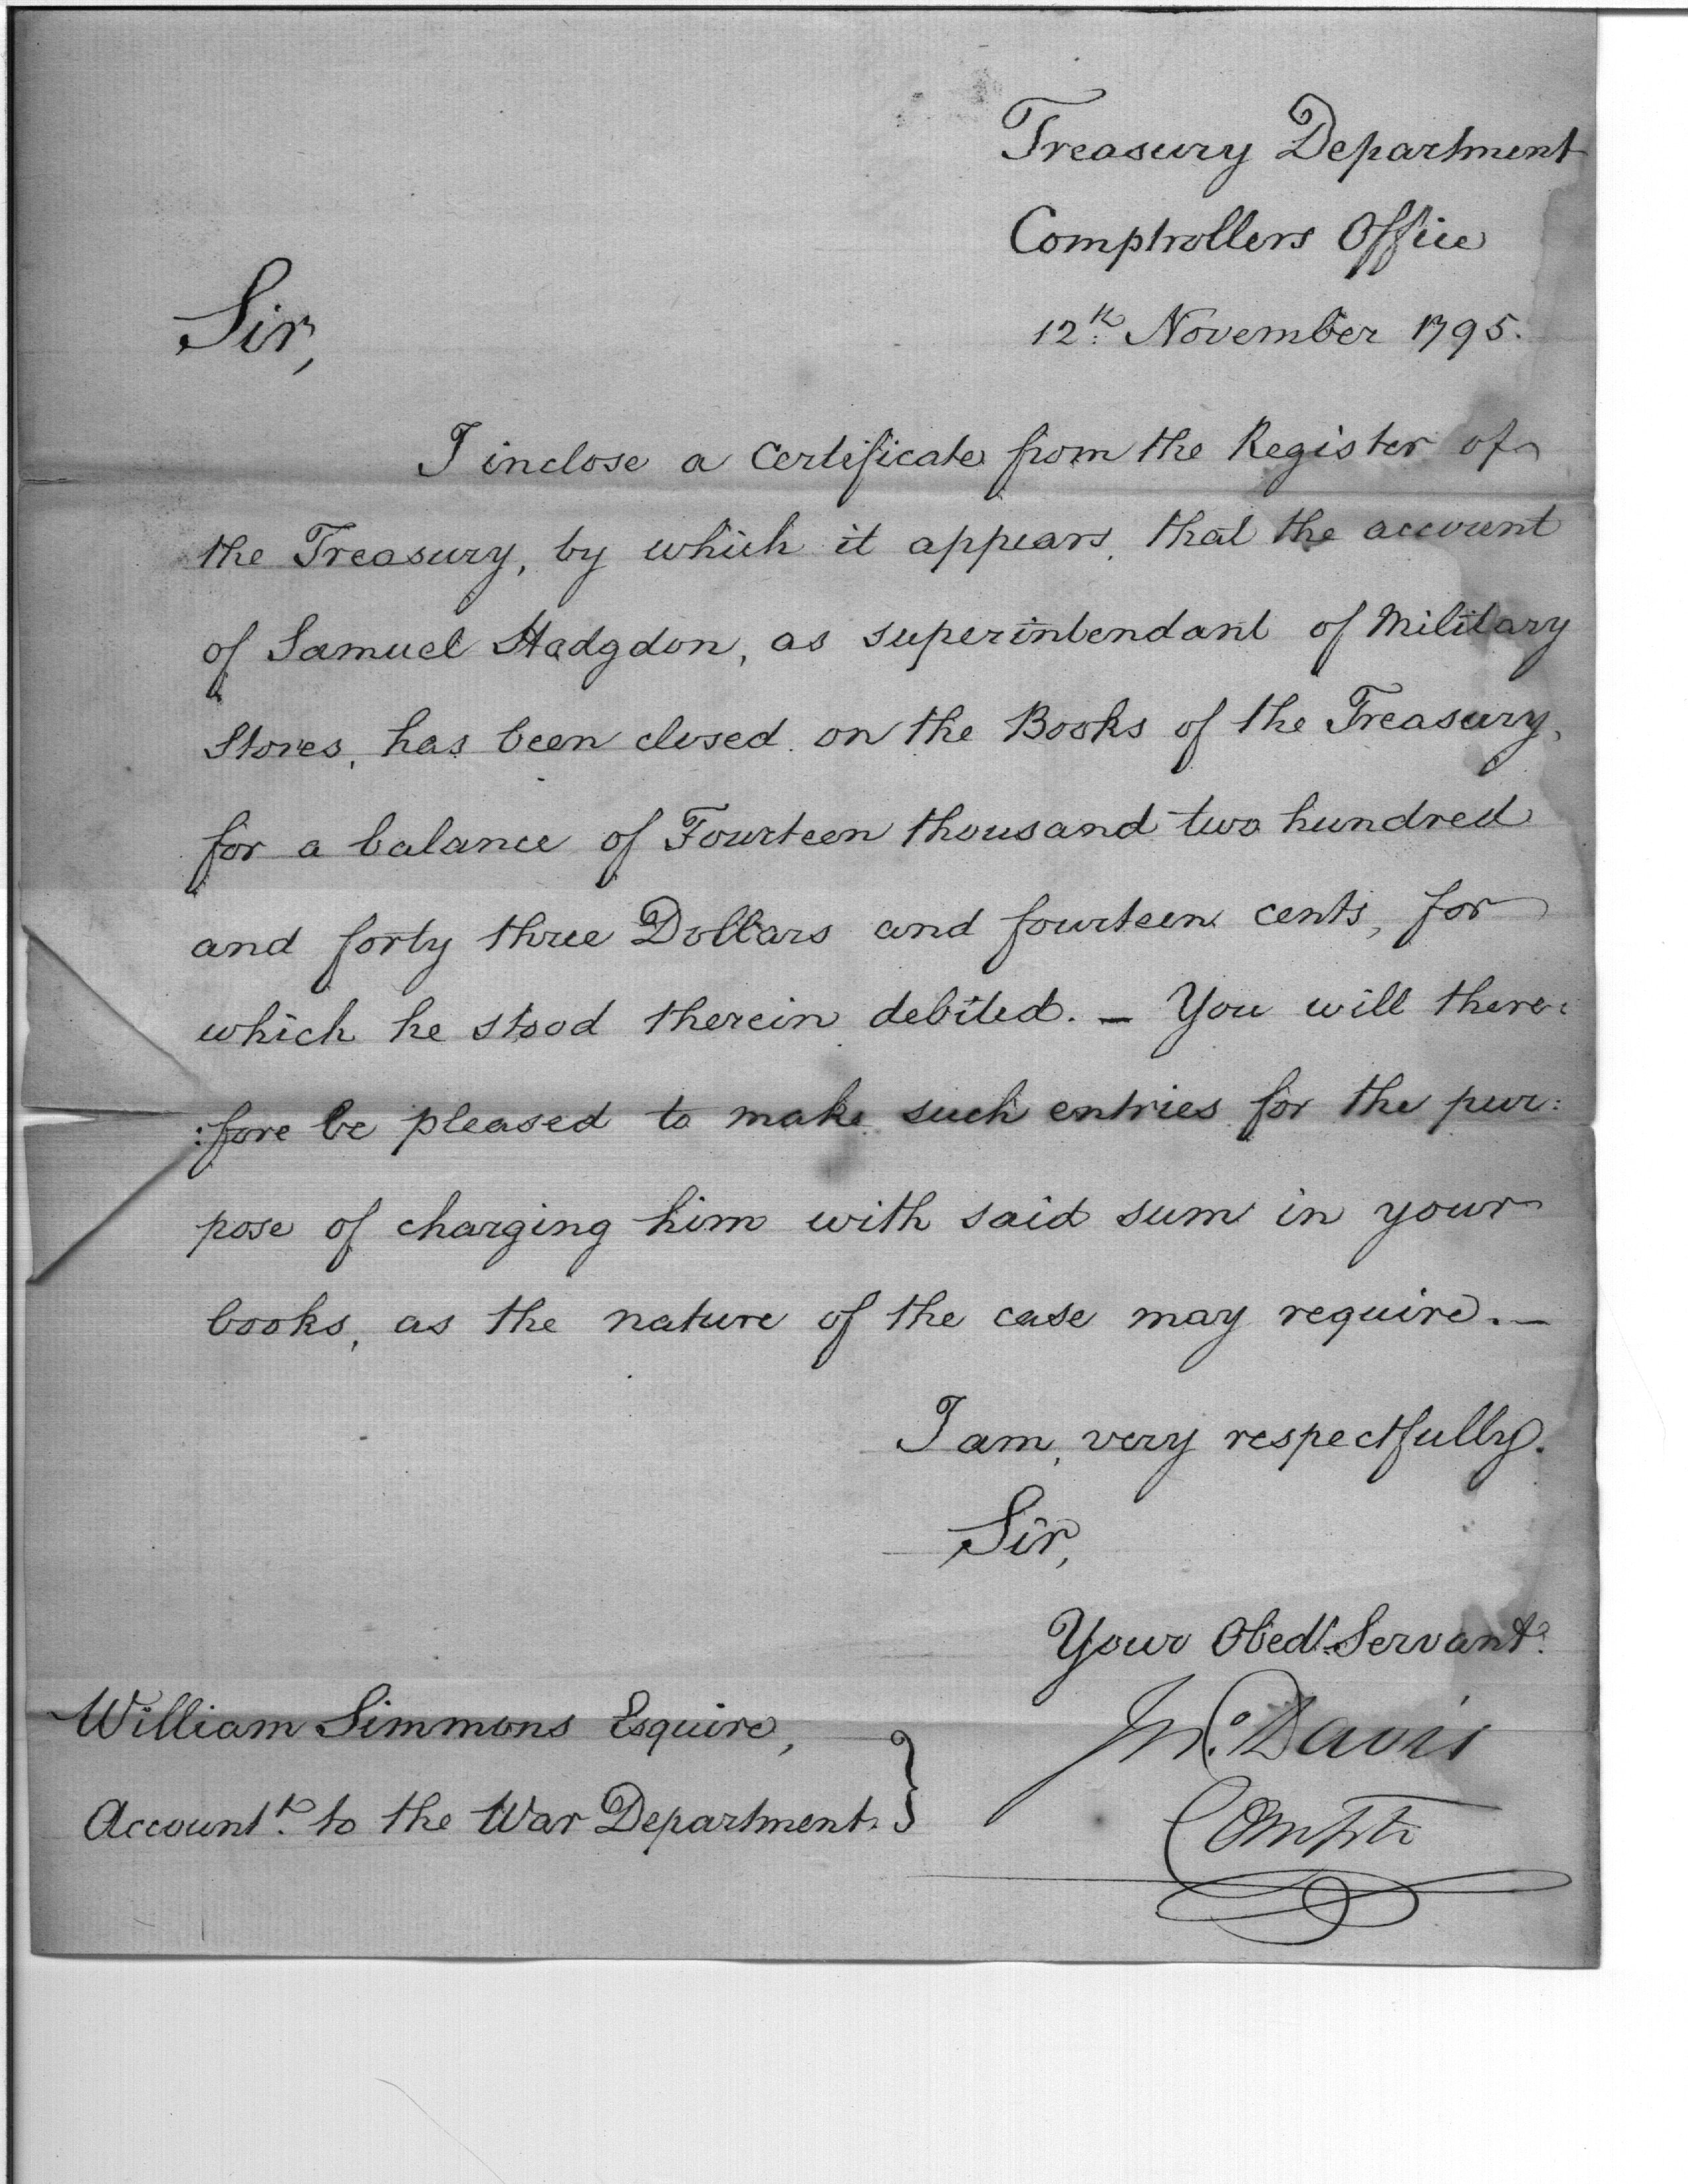 Treasury Department
Comptrollers Office
12th November 1795.
Sir,
I inclose a Certificate from the Register of
the Treasury, by which it appears, that the account
of Samuel Hodgdon, as superintendant of Military
Stores, has been closed on the Books of the Treasury,
for a balance of Fourteen thousand two hundred
and forty three Dollars and fourteen cents, for
which he stood therein debited. — You will there:
:fore be pleased to make such entries for the pur:
pose of charging him with said sum in your
books, as the nature of the case may require. —
I am, very respectfully.
Sir,
Your Obedt. Servant.
Jno. Davis
Comptr
William Simmons Esquire,
Accountt. to the War Department. }